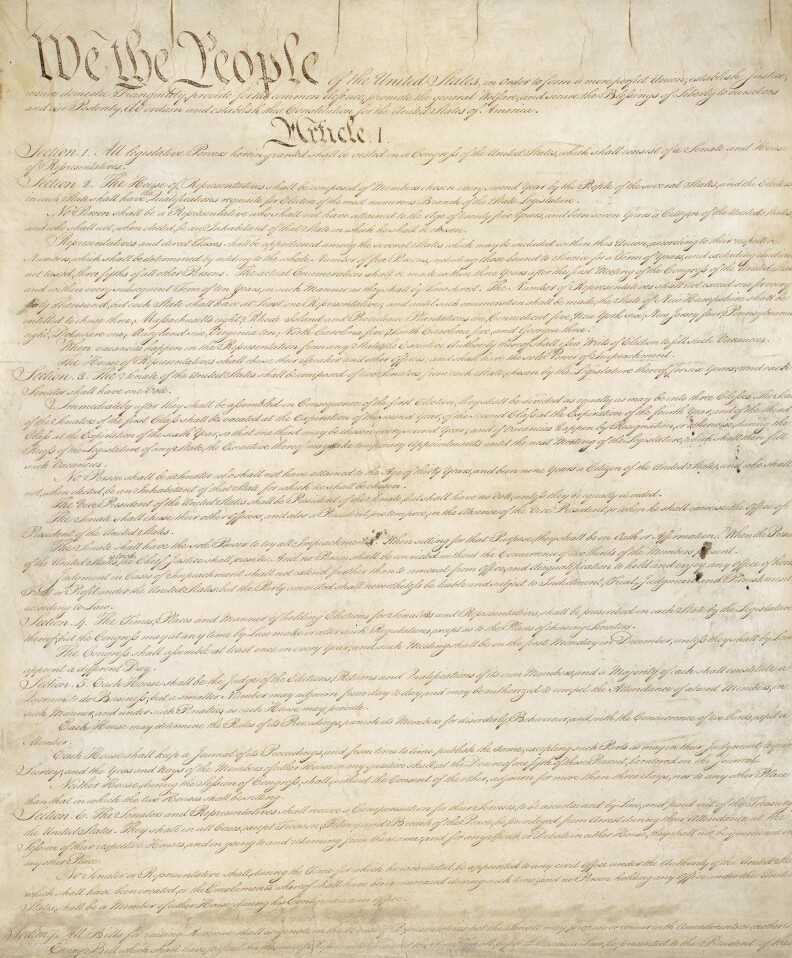 We the People of the United States, in Order to form a more perfect Union, establish Justice,
insure domestic Tranquility, provide for the common defence, promote the general Welfare, and secure the Blessings of Liberty to ourselves
and our Posterity, do ordain and establish this Constitution for the United States of America.
Article. I.
Section. 1. All legislative Powers herein granted shall be vested in a Congress of the United States, which shall consist of a Senate and House
of Representatives.
Section. 2. The House of Representatives shall be composed of Members chosen every second Year by the People of the several States, and the Electors
in each State shall have Qualifications requisite for Electors of the most numerous Branch of the State Legislature.
No Person shall be a Representative who shall not have attained to the Age of twenty five Years, and been seven Years a Citizen of the United States,
and who shall not, when elected, be an Inhabitant of that State in which he shall be chosen.
Representatives and direct Taxes shall be apportioned among the several States which may be included within this Union, according to their respective
Numbers, which shall be determined by adding to the whole Number of free Persons, including those bound to Service for a Term of Years, and excluding Indians
not taxed, three fifths of all other Persons. The actual Enumeration shall be made within three Years after the first Meeting of the Congress of the United States,
and within every subsequent Term of ten Years, in such Manner as they shall by Law direct. The Number of Representatives shall not exceed one for every
thirty Thousand, but each State shall have at Least one Representative; and until such enumeration shall be made, the State of New Hampshire shall be
entitled to chuse three, Massachusetts eight, Rhode-Island and Providence Plantations one, Connecticut five, New-York six, New Jersey four, Pennsylvania
eight, Delaware one, Maryland six, Virginia ten, North Carolina five, South Carolina five, and Georgia three.
When vacancies happen in the Representation from any State, the Executive Authority thereof shall issue Writs of Election to fill such Vacancies.
The House of Representatives shall chuse their Speaker and other Officers; and shall have the sole Power of Impeachment.
Section. 3. The Senate of the United States shall be composed of two Senators from each State, chosen by the Legislature thereof, for six Years; and each
Senator shall have one Vote.
Immediately after they shall be assembled in Consequence of the first Election, they shall be divided as equally as may be into three Classes. The Seats
of the Senators of the first Class shall be vacated at the Expiration of the second Year, of the second Class at the Expiration of the fourth Year, and of the third
Class at the Expiration of the sixth Year, so that one third may be chosen every second Year; and if Vacancies happen by Resignation, or otherwise, during the
Recess of the Legislature of any State, the Executive thereof may make temporary Appointments until the next Meeting of the Legislature, which shall then fill
such Vacancies.
No Person shall be a Senator who shall not have attained to the Age of thirty Years, and been nine Years a Citizen of the United States, and who shall
not, when elected, be an Inhabitant of that State for which he shall be chosen.
The Vice President of the United States shall be President of the Senate, but shall have no Vote, unless they be equally divided.
The Senate shall chuse their other Officers, and also a President pro tempore, in the Absence of the Vice President, or when he shall exercise the Office of
President of the United States.
The Senate shall have the sole Power to try all Impeachments. When sitting for that Purpose, they shall be on Oath or Affirmation. When the President
of the United States is tried, the Chief Justice shall preside: And no Person shall be convicted without the Concurrence of two thirds of the Members present.
Judgment in Cases of Impeachment shall not extend further than to removal from Office, and disqualification to hold and enjoy any Office of honor,
Trust or Profit under the United States: but the Party convicted shall nevertheless be liable and subject to Indictment, Trial, Judgment and Punishment,
according to Law.
Section. 4. The Times, Places and Manner of holding Elections for Senators and Representatives, shall be prescribed in each State by the Legislature
thereof; but the Congress may at any time by Law make or alter such Regulations, except as to the Places of chusing Senators.
The Congress shall assemble at least once in every Year, and such Meeting shall be on the first Monday in December, unless they shall by Law
appoint a different Day.
Section. 5. Each House shall be the Judge of the Elections, Returns and Qualifications of its own Members, and a Majority of each shall constitute a
Quorum to do Business; but a smaller Number may adjourn from day to day, and may be authorized to compel the Attendance of absent Members, in
such Manner, and under such Penalties as each House may provide.
Each House may determine the Rules of its Proceedings, punish its Members for disorderly Behaviour, and, with the Concurrence of two thirds, expel a
Member.
Each House shall keep a Journal of its Proceedings, and from time to time publish the same, excepting such Parts as may in their Judgment require
Secrecy; and the Yeas and Nays of the Members of either House on any question shall, at the Desire of one fifth of those Present, be entered on the Journal.
Neither House, during the Session of Congress, shall, without the Consent of the other, adjourn for more than three days, nor to any other Place
than that in which the two Houses shall be sitting.
Section. 6. The Senators and Representatives shall receive a Compensation for their Services, to be ascertained by Law, and paid out of the Treasury of
the United States. They shall in all Cases, except Treason, Felony and Breach of the Peace, be privileged from Arrest during their Attendance at the
Session of their respective Houses, and in going to and returning from the same; and for any Speech or Debate in either House, they shall not be questioned in
any other Place.
No Senator or Representative shall, during the Time for which he was elected, be appointed to any civil Office under the Authority of the United States,
which shall have been created, or the Emoluments whereof shall have been encreased during such time; and no Person holding any Office under the United
States, shall be a Member of either House during his Continuance in Office.
Section. 7. All Bills for raising Revenue shall originate in the House of Representatives; but the Senate may propose or concur with Amendments as on other
Every Bill which shall have passed the House of Representatives and the Senate, shall, before it become a Law, be presented to the President of the